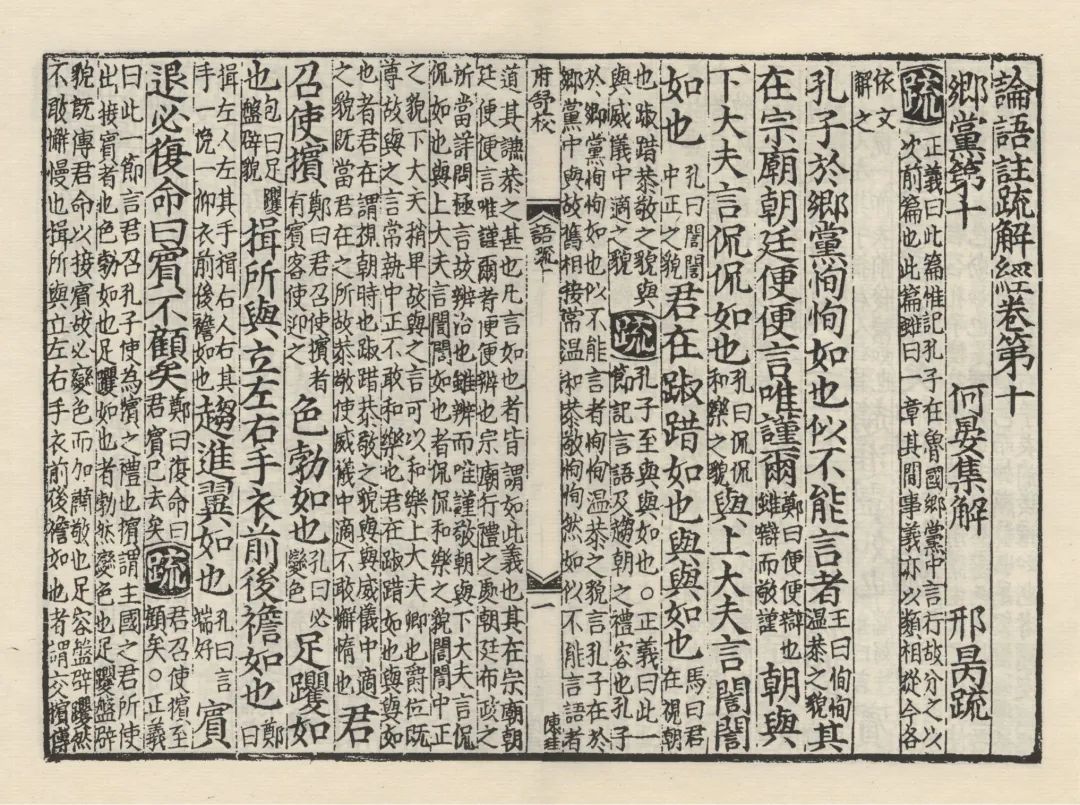 論語註疏解經卷第十
鄉黨第十　何晏集解　邢昺疏
疏正義曰此篇惟記孔子在魯國鄉黨中言行故分之以
次前篇也此篇雖曰一章其間事義亦以類相從今各
依文
解之
孔子於鄉黨恂恂如也似不能言者王曰恂恂溫恭之貌其
在宗廟朝廷便便言唯謹爾鄭曰便便辯也雖辯而敬謹朝與
下大夫言侃侃如也孔曰侃侃和樂之貌與上大夫言誾誾
如也孔曰誾誾中正之貌君在踧踖如也與與如也馬曰君在視朝
也踧踖恭敬之貌與與威儀中適之貌疏孔子至與與如也○正義曰此一節記言語及趨朝之禮容也孔子
於鄉黨恂恂如也似不能言者恂恂溫恭之貌言孔子在於
鄉黨中與故舊相接常溫和恭敬恂恂然如似不能言語者
府舒校
語疏十
一
陳珪
道其謙恭之甚也凡言如也者皆謂如此義也其在宗廟朝
廷便便言唯謹爾者便便辯也宗廟行禮之處朝廷布政之
所當詳問極言故辨治也雖辨而唯謹敬朝與下大夫言侃
侃如也與上大夫言誾誾如也者侃侃和樂之貌誾誾中正
之貌下大夫稍卑故與之言可以和樂上大夫卿也爵位既
尊故與之言常執中正不敢和樂也君在踧踖如也與與如
也者君在謂視朝時也踧踖恭敬之貌與與威儀中適之貌既當君在之所故恭敬使威儀中適不敢懈惰也君
召使擯鄭曰君召使擯者有賓客使迎之色勃如也孔曰必變色足躩如
也包曰足躩盤辟貌揖所與立左右手衣前後襜如也鄭曰
揖左人左其手揖右人右其手一俛一仰衣前後襜如也趨進翼如也孔曰言端好賓
退必復命曰賓不顧矣鄭曰復命曰君賓已去矣疏君召使擯至顧矣○正義
曰此一節言君召孔子使為擯之禮也擯謂主國之君所使
出接賓者也色勃如也足躩如也者勃然變色也足躩盤辟
貌既傳君命以接賓故必變色而加肅敬也足容盤辟躩然
不敢懈慢也揖所與立左右手衣前後襜如也者謂交擯傳